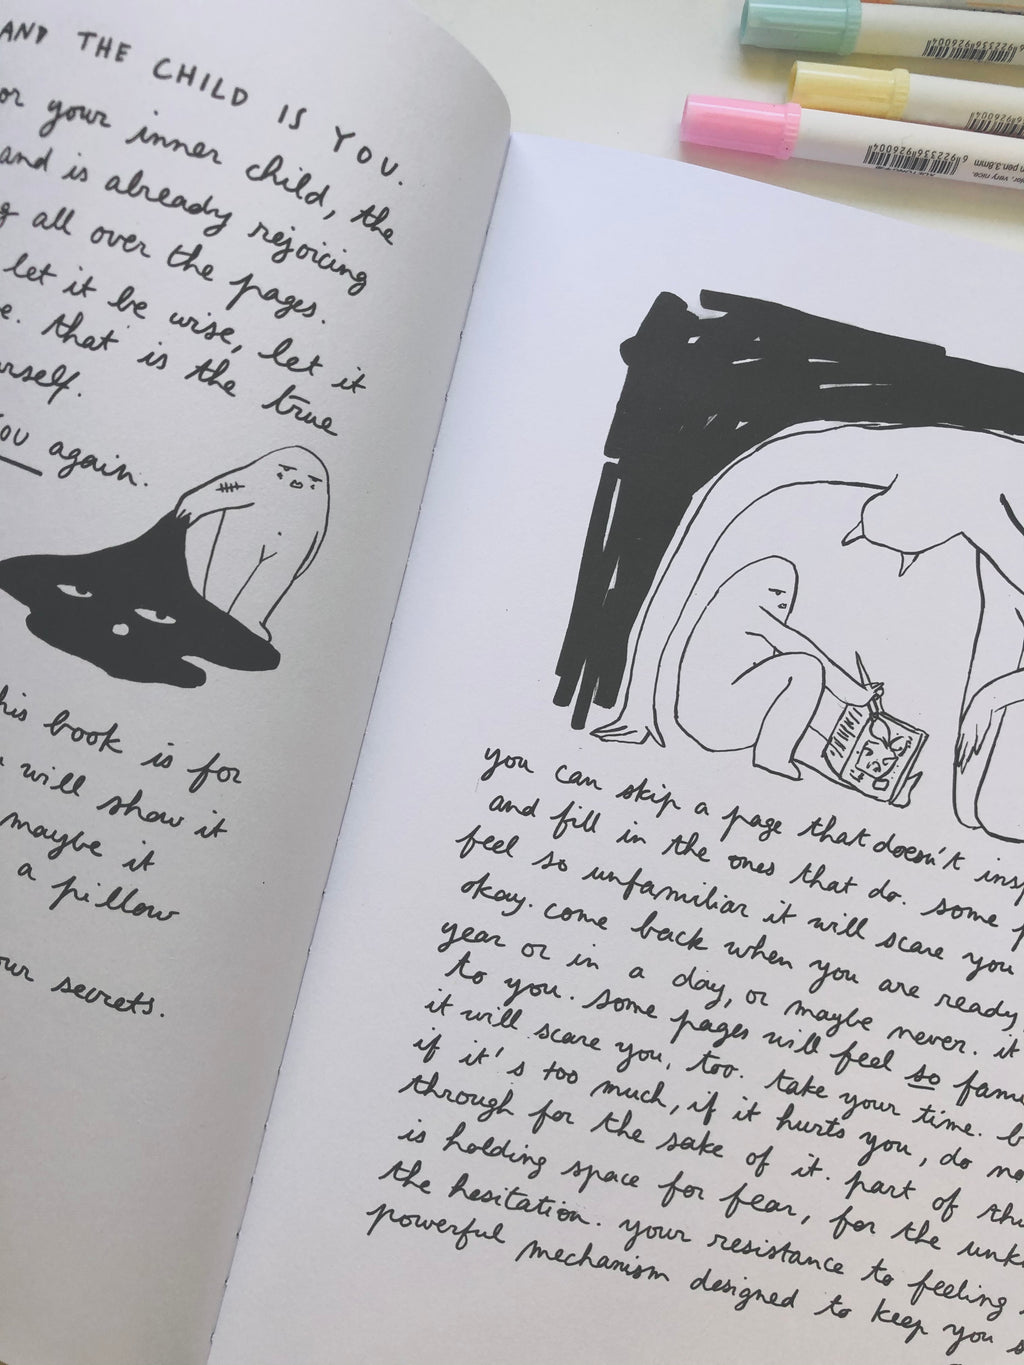 AND THE CHILD IS YOU.
or your inner child, the
and is already rejoicing
g all over the pages.
let it be wise, let it
e. that is the true
urself.
YOU again.
his book is for
will show it
maybe it
a pillow
our secrets.
you can skip a page that doesn't insp
and fill in the ones that do. some p
feel so unfamiliar it will scare you
okay. come back when you are ready,
year or in a day, or maybe never. it
to you. some pages will feel so fami
it will scare you, too. take your time. b
if it's too much, if it hurts you, do no
through for the sake of it. part of thi
is holding space for fear, for the unk
the hesitation. your resistance to feeling
powerful mechanism designed to keep you s
6 922336 926004
6 922336 926004
pen.3.8mm
very nice.